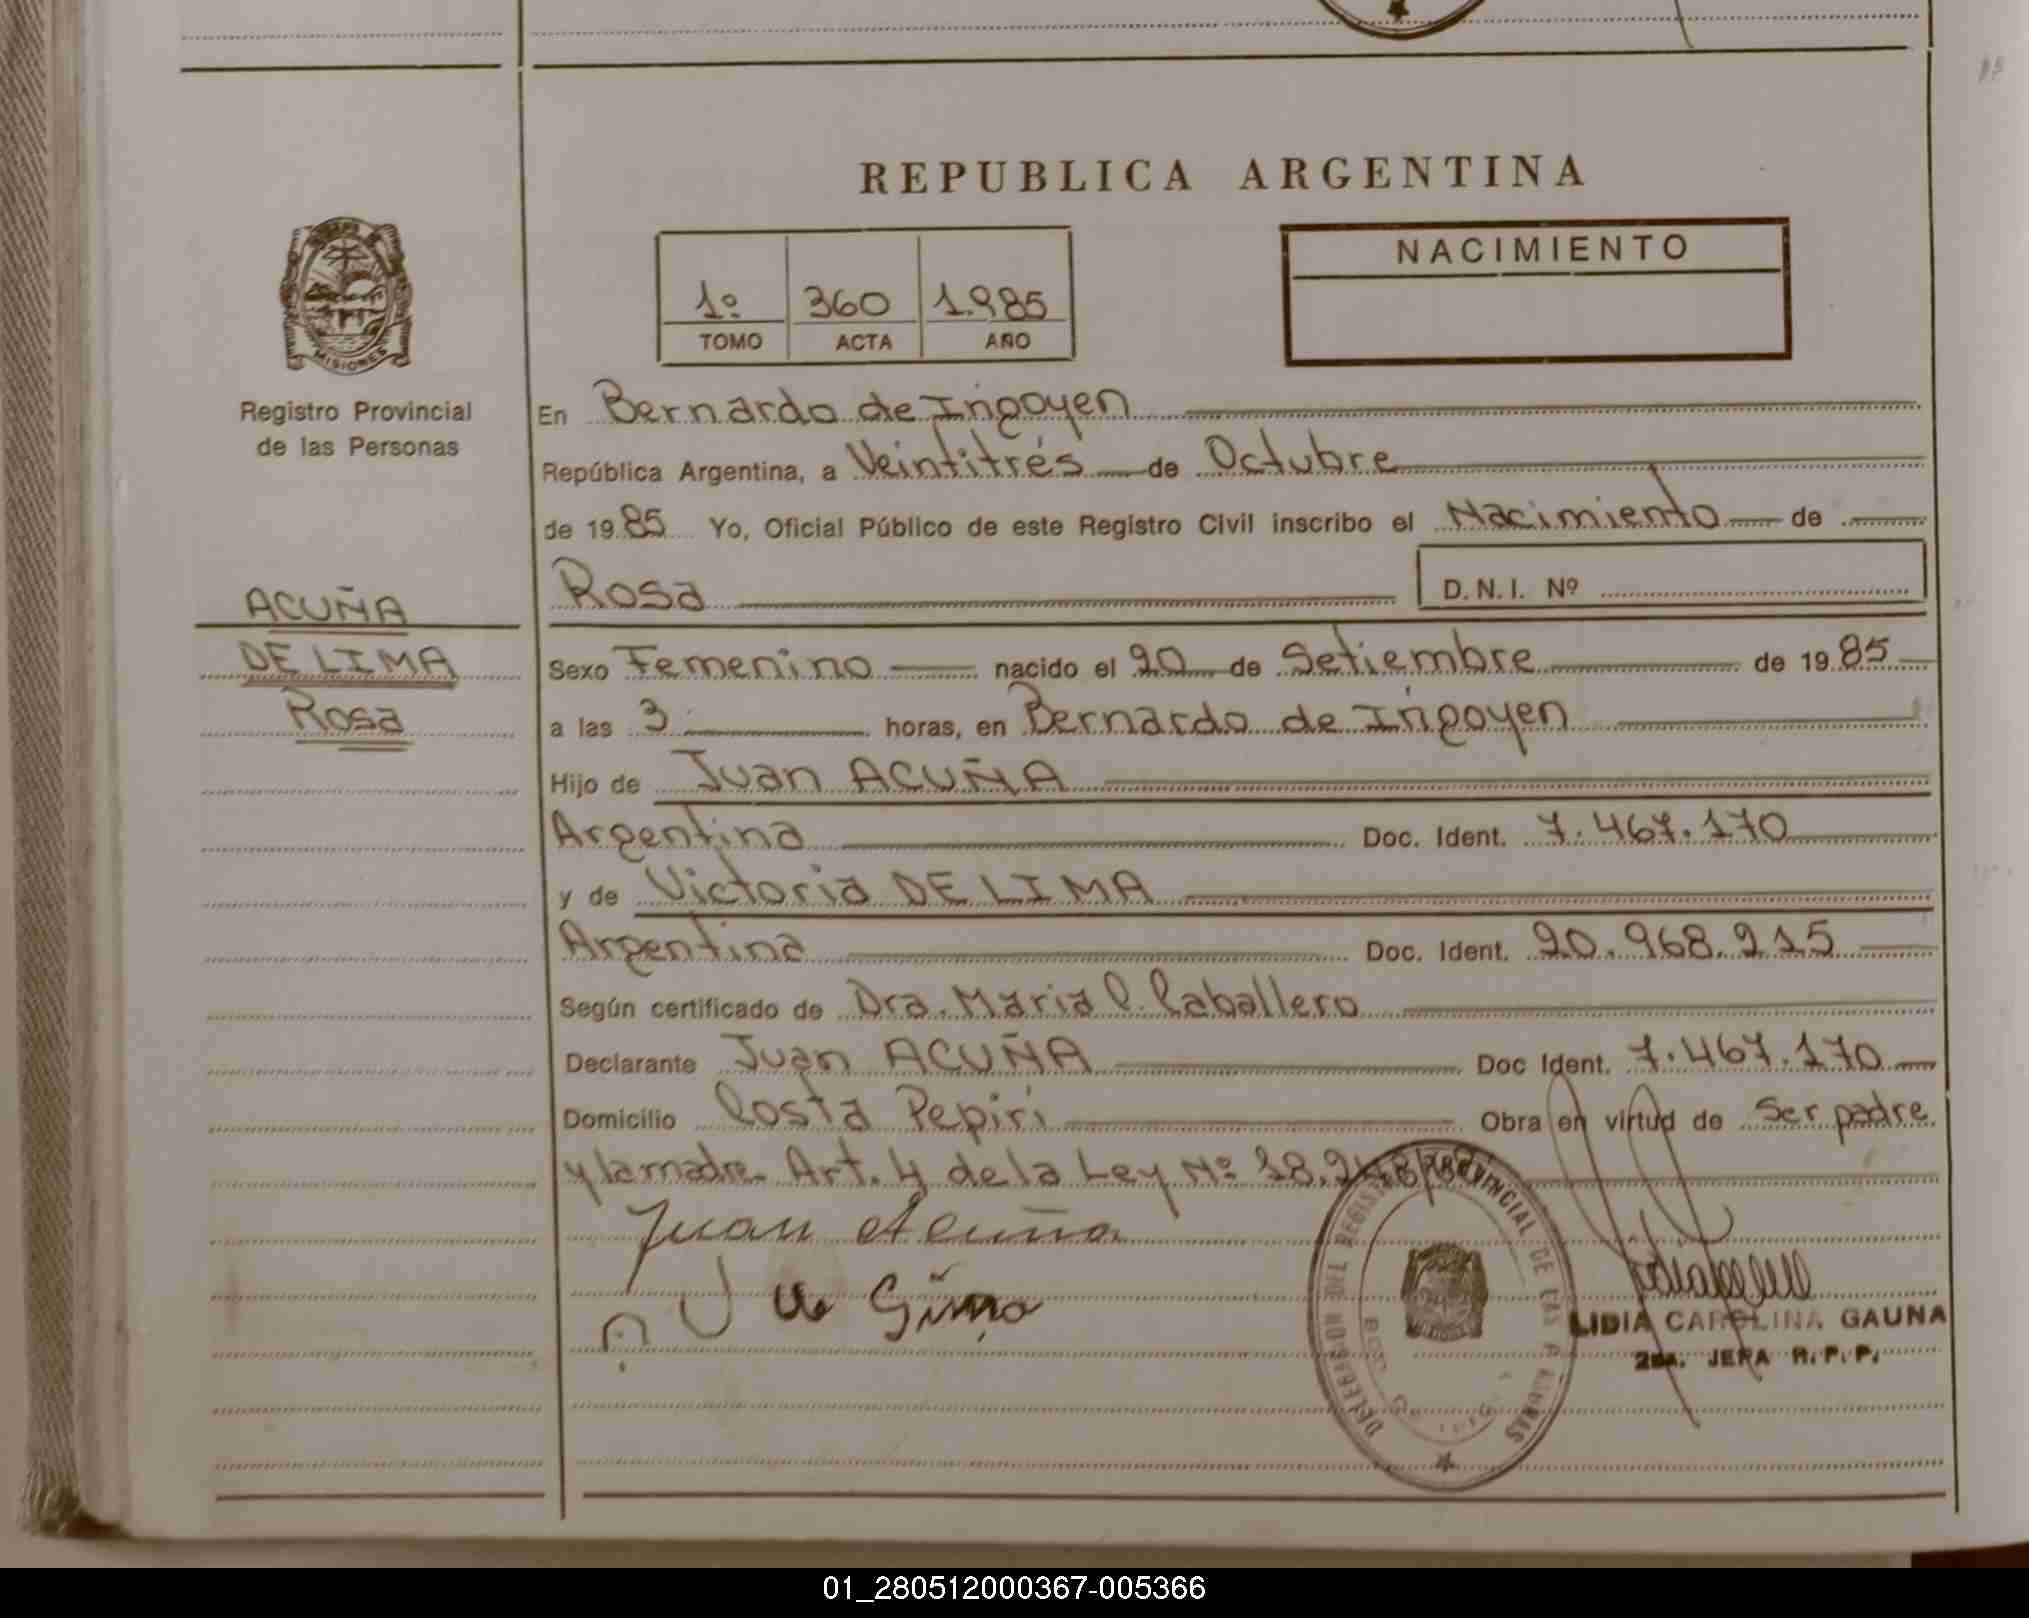 REPUBLICA ARGENTINA
NACIMIENTO
1º 360 1.985
TOMO ACTA AÑO
MISIONES
Registro Provincial
de las Personas
En Bernardo de Irigoyen
República Argentina, a Veintitrés de Octubre
de 19 85 Yo, Oficial Público de este Registro Civil inscribo el Nacimiento de
Rosa D.N.I. Nº
ACUÑA
DE LIMA
Rosa
Sexo Femenino nacido el 20 de Setiembre de 19 85
a las 3 horas, en Bernardo de Irigoyen
Hijo de Juan ACUÑA
Argentina Doc. Ident. 7.467.170
y de Victoria DE LIMA
Argentina Doc. Ident. 20.968.215
Según certificado de Dra. Maria C. Caballero
Declarante Juan ACUÑA Doc Ident. 7.467.170
Domicilio Costa Pepirí Obra en virtud de Ser padre
y la madre Art. 4 de la Ley Nº 18.248/
Juan Acuña
DELEGACION DEL REGISTRO PROVINCIAL DE LAS PERSONAS
LIDIA CAROLINA GAUNA
2da. JEFA R.P.P.
01_280512000367-005366